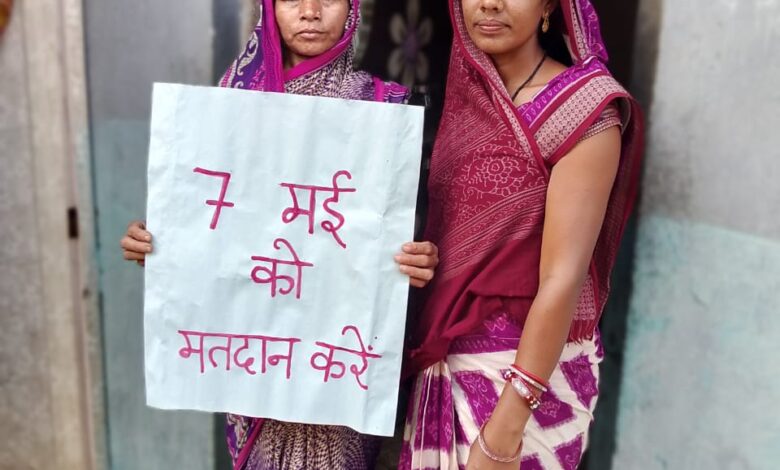 7 मई
को
मतदान करें